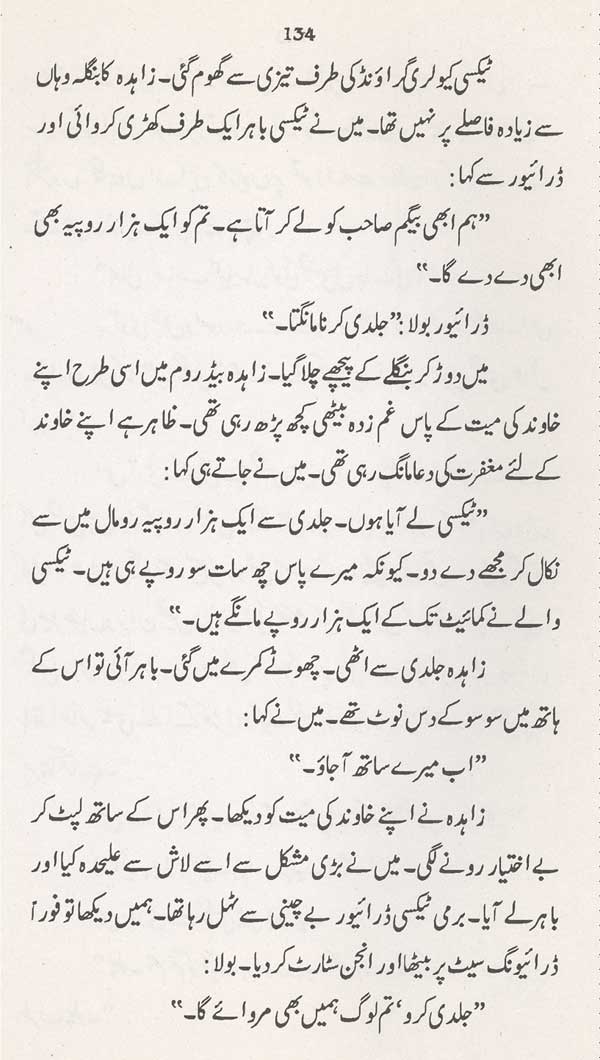 134
ٹیکسی کیولری گراؤنڈ کی طرف تیزی سے گھوم گئی۔ زاہدہ کا بنگلہ وہاں
سے زیادہ فاصلے پر نہیں تھا۔ میں نے ٹیکسی باہر ایک طرف کھڑی کروائی اور
ڈرائیور سے کہا:
”ہم ابھی بیگم صاحب کو لے کر آتا ہے۔ تم کو ایک ہزار روپیہ بھی
ابھی دے دے گا۔“
ڈرائیور بولا: ”جلدی کرنا مانگتا۔“
میں دوڑ کر بنگلے کے پیچھے چلا گیا۔ زاہدہ بیڈ روم میں اسی طرح اپنے
خاوند کی میت کے پاس غم زدہ بیٹھی کچھ پڑھ رہی تھی۔ ظاہر ہے اپنے خاوند
کے لئے مغفرت کی دعا مانگ رہی تھی۔ میں نے جاتے ہی کہا:
”ٹیکسی لے آیا ہوں۔ جلدی سے ایک ہزار روپیہ رومال میں سے
نکال کر مجھے دے دو۔ کیونکہ میرے پاس چھ سات سو روپے ہی ہیں۔ ٹیکسی
والے نے کمائیٹ تک کے ایک ہزار روپے مانگے ہیں۔“
زاہدہ جلدی سے اٹھی۔ چھوٹے کمرے میں گئی۔ باہر آئی تو اس کے
ہاتھ میں سو سو کے دس نوٹ تھے۔ میں نے کہا:
”اب میرے ساتھ آجاؤ۔“
زاہدہ نے اپنے خاوند کی میت کو دیکھا۔ پھر اس کے ساتھ لپٹ کر
بے اختیار رونے لگی۔ میں نے بڑی مشکل سے اسے لاش سے علیحدہ کیا اور
باہر لے آیا۔ برمی ٹیکسی ڈرائیور بے چینی سے ٹہل رہا تھا۔ ہمیں دیکھا تو فوراً
ڈرائیونگ سیٹ پر بیٹھا اور انجن سٹارٹ کر دیا۔ بولا:
”جلدی کرو‘ تم لوگ ہمیں بھی مروائے گا۔“